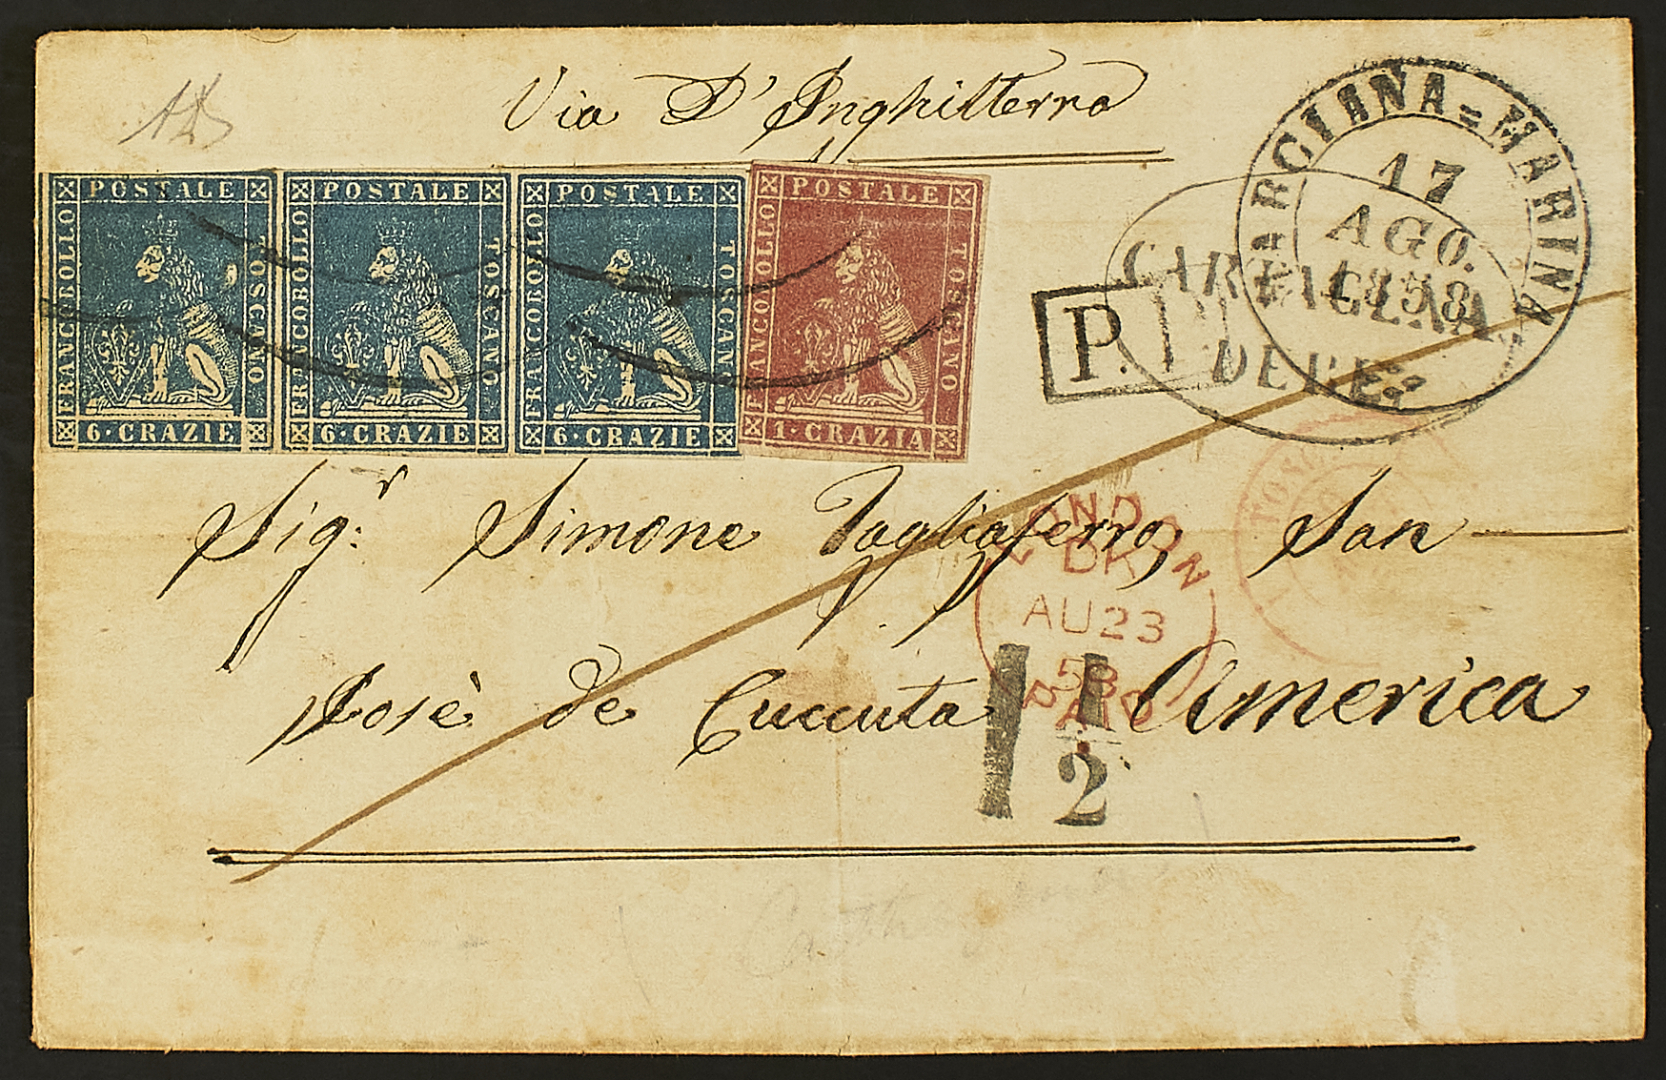 Via D'Inghilterra
POSTALE FRANCOBOLLO TOSCANO 6·CRAZIE
POSTALE FRANCOBOLLO TOSCANO 6·CRAZIE
POSTALE FRANCOBOLLO TOSCANO 6·CRAZIE
POSTALE FRANCOBOLLO TOSCANO 1·CRAZIA
MARCIANA=MARINA
17
AGO.
1858
CARTAGENA
DEBE
P.
Sig:r Simone Tagliaferro, San
Josè de Cuccuta America
LONDON
AU23
58
PAID
1 1/2